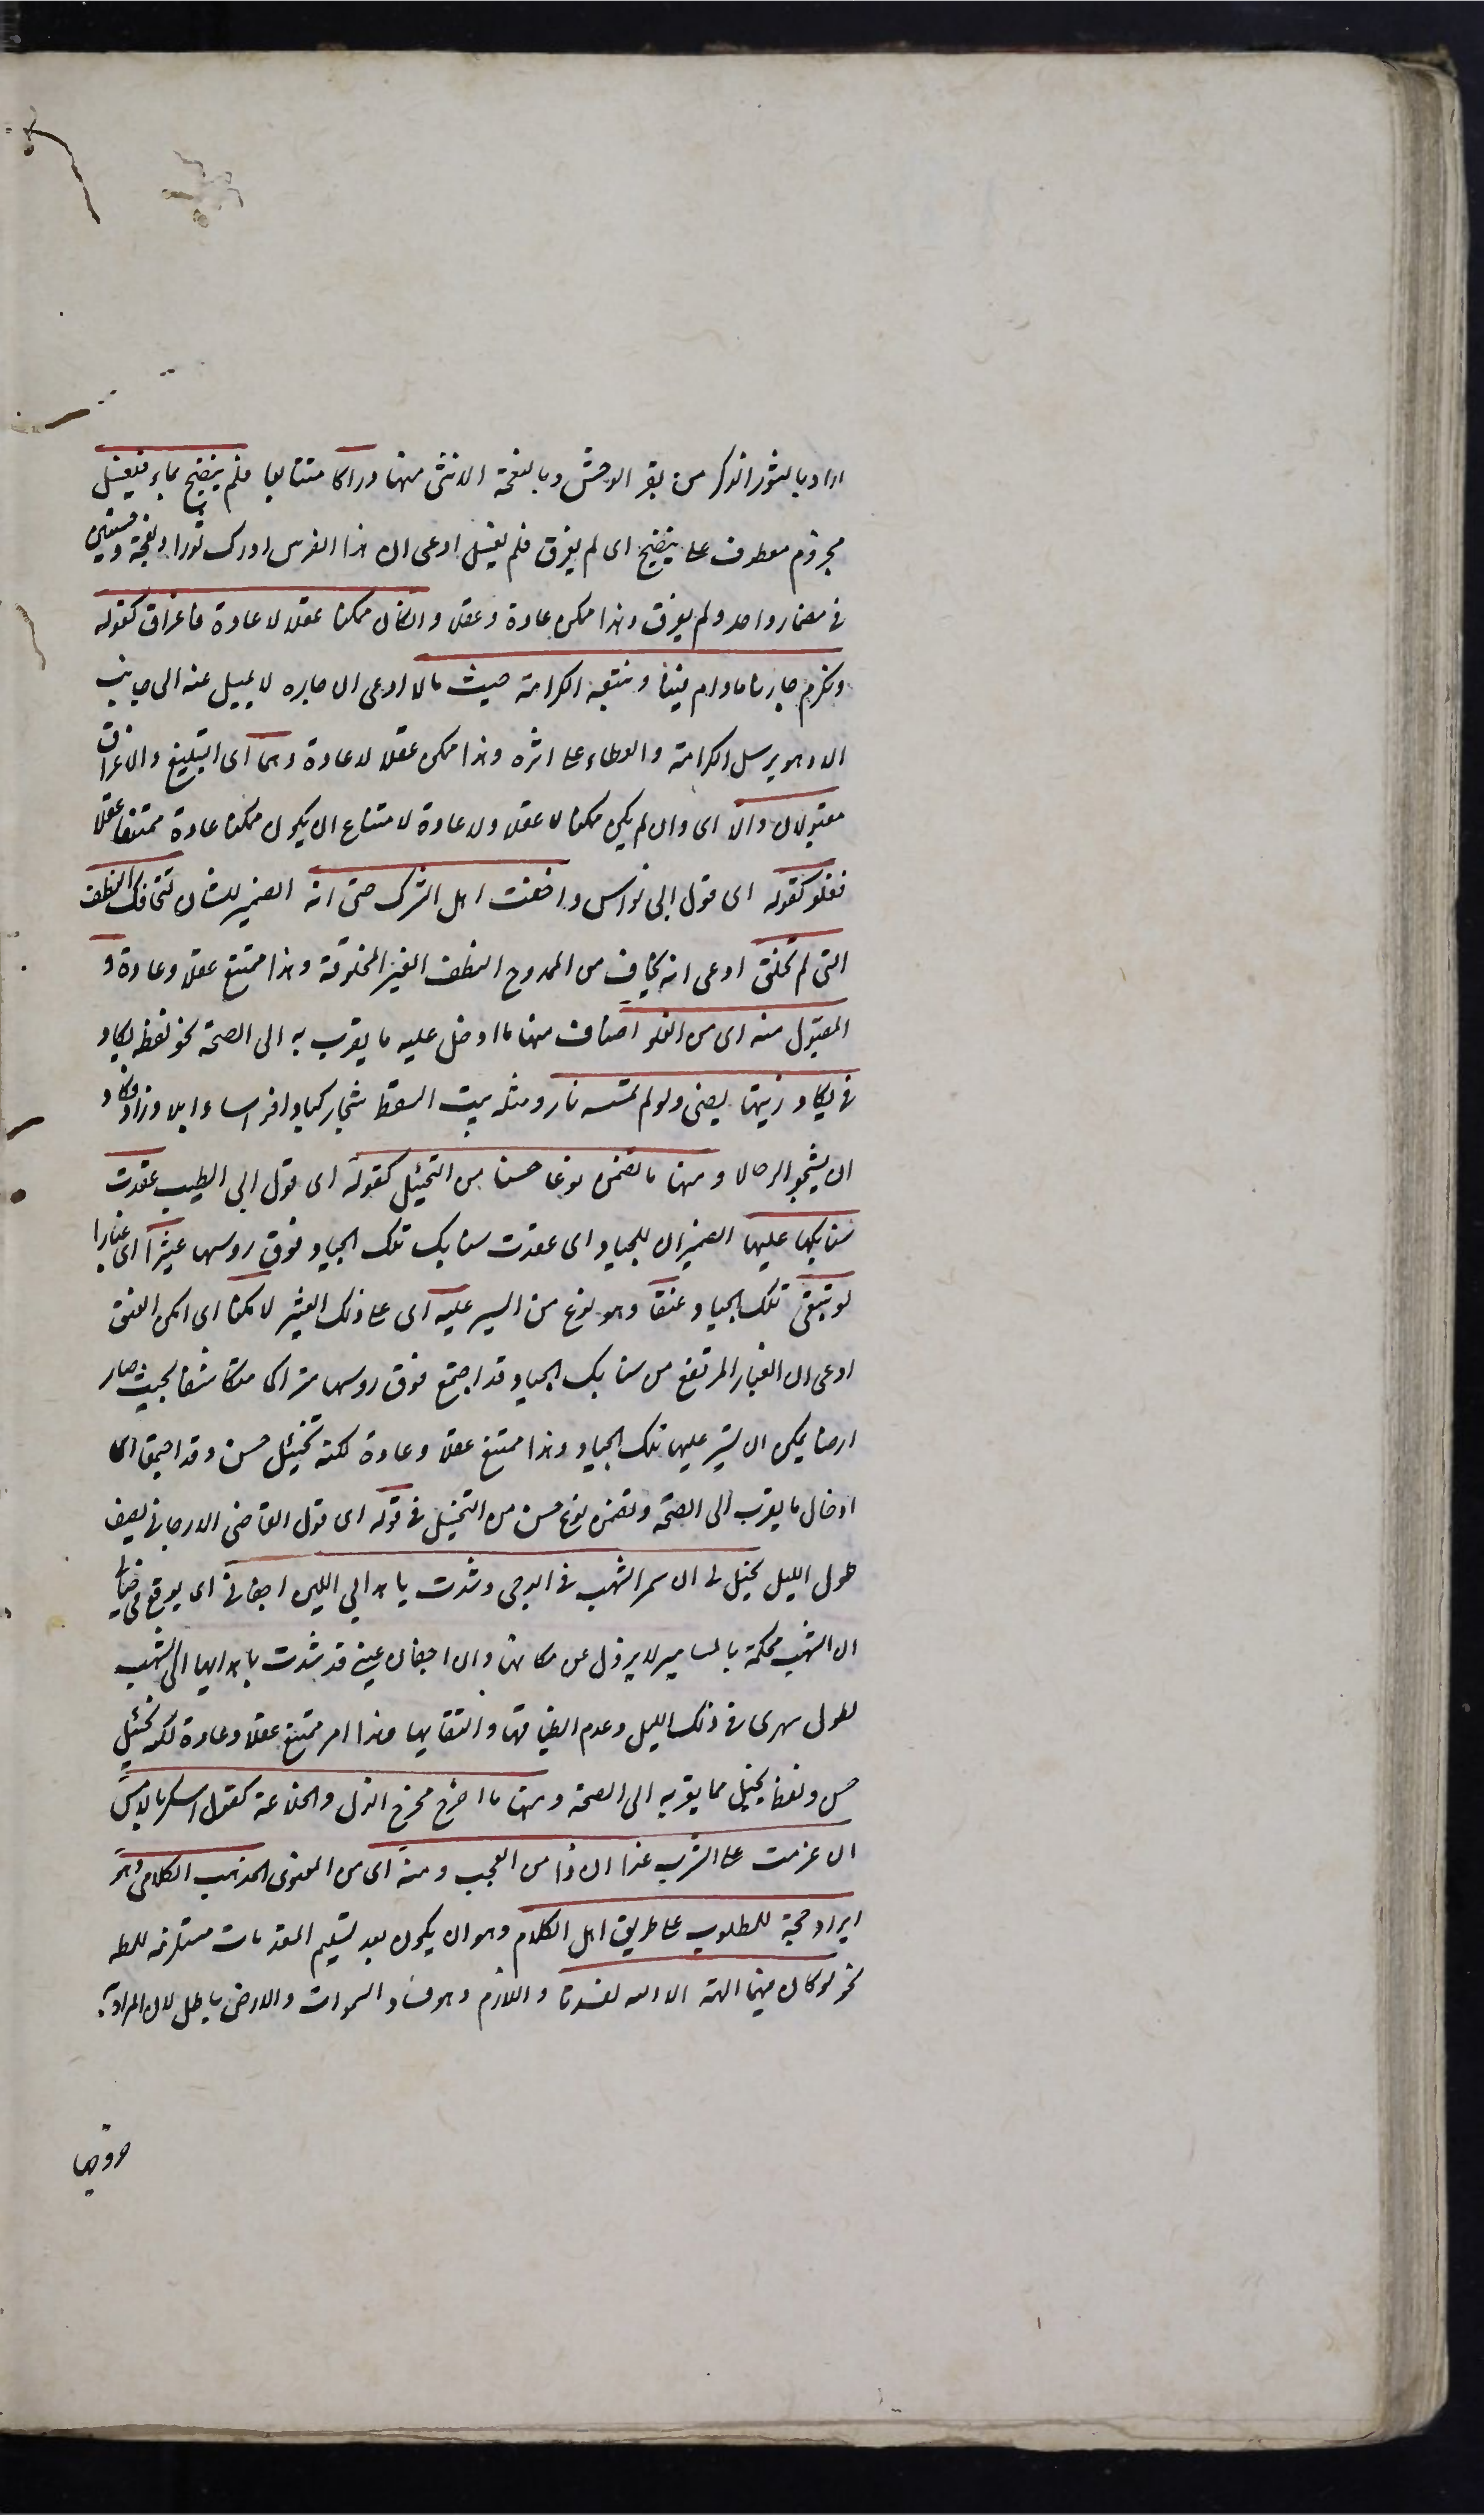 اراد بالثور الذكر من بقر الوحش وبالنعجة الانثى منها دراكا متتابعا فلم ينضح بماء فيغسل
مجزوم معطوف على ينضح اى لم يعرق فلم يغسل ادعى ان هذا الفرس ادرك ثورا ونعجة وحشيين
فى مضمار واحد ولم يعرق وهذا ممكن عادة وعقلا وان كان ممكنا عقلا لا عادة فاغراق كقوله
ونكرم جارنا مادام فينا ونتبعه الكرامة حيث مالا ادعى ان جاره لا يميل عنه الى جانب
الا وهو يرسل الكرامة والعطاء على اثره وهذا ممكن عقلا لا عادة وهما اى التبليغ والاغراق
مقبولان والا اى وان لم يكن ممكنا لا عقلا ولا عادة لامتناع ان يكون ممكنا عادة ممتنعا عقلا
فغلو كقوله اى قول ابى نواس واخفت اهل الشرك حتى انه الضمير للشان لتخافك النطف
التى لم تخلق ادعى انه يخاف من الممدوح النطف الغير المخلوقة وهذا ممتنع عقلا وعادة و
المقبول منه اى من الغلو اصناف منها ما ادخل عليه ما يقرب به الى الصحة نحو لفظه يكاد
فى يكاد زيتها يضئ ولو لم تمسسه نار ومثله بيت السقط شجا ركبا وافراسا وابلا وزاد فكاد
ان يشجو الرحالا ومنها ما تضمن نوعا حسنا من التخييل كقوله اى قول ابى الطيب عقدت
سنابكها عليها الضميران للجياد اى عقدت سنابك تلك الجياد فوق روسها عثيرا اى غبارا
لو تبتغى تلك الجياد عنقا وهو نوع من السير عليه اى على ذلك العثير لامكنا اى امكن العنق
ادعى ان الغبار المرتفع من سنابك الجياد قد اجتمع فوق روسها متراكما متكاثفا بحيث صار
ارضا يمكن ان تسير عليها تلك الجياد وهذا ممتنع عقلا وعادة لكنه تخييل حسن وقد اجتمعا اى
ادخال ما يقرب الى الصحة وتضمن نوع حسن من التخييل فى قوله اى قول القاضى الارجانى يصف
طول الليل يخيل لى ان سمر الشهب فى الدجى وشدت باهدابى اليهن اجفانى اى يوقع فى خيالى
ان الشهب محكمة بالمسامير لا يزول عن مكانها وان اجفان عينى قد شدت باهدابها الى الشهب
لطول سهرى فى ذلك الليل وعدم انطباقها والتقايها وهذا امر ممتنع عقلا وعادة لكنه تخييل
حسن ولفظ يخيل مما يقربه الى الصحة ومنها ما اخرج مخرج الهزل والخلاعة كقوله اسكر بالامس
ان عزمت على الشرب غدا ان ذا من العجب ومنه اى من المعنوى المذهب الكلامى وهو
ايراد حجة للمطلوب على طريق اهل الكلام وهو ان يكون بعد تسليم المقدمات مستلزمة للمط
نحو لو كان فيهما الهة الا الله لفسدتا واللازم وهو فساد السموات والارض باطل لان المراد به
خروجهما